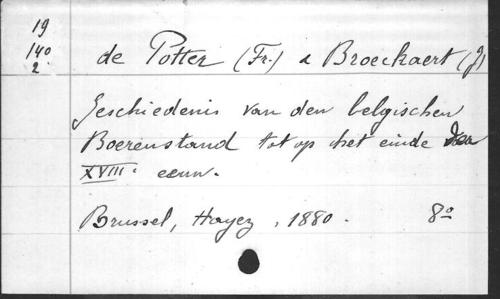 19
140
2.
de Potter (Fr.) & Broeckaert (J)
Geschiedenis van den belgischen
Boerenstand tot op het einde der
XVIIIe eeuw.
Brussel, Hayez, 1880. 8º